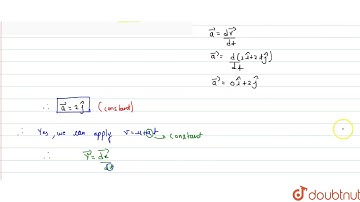 a⃗ = dv⃗/dt
a⃗ = d(2î+2tĵ)/dt
a⃗ = 0î+2ĵ
∴ a⃗ = 2ĵ (constant)
∴ Yes, we can apply v=u+at → constant
∴ v⃗ = dx⃗/dt
doubtnut